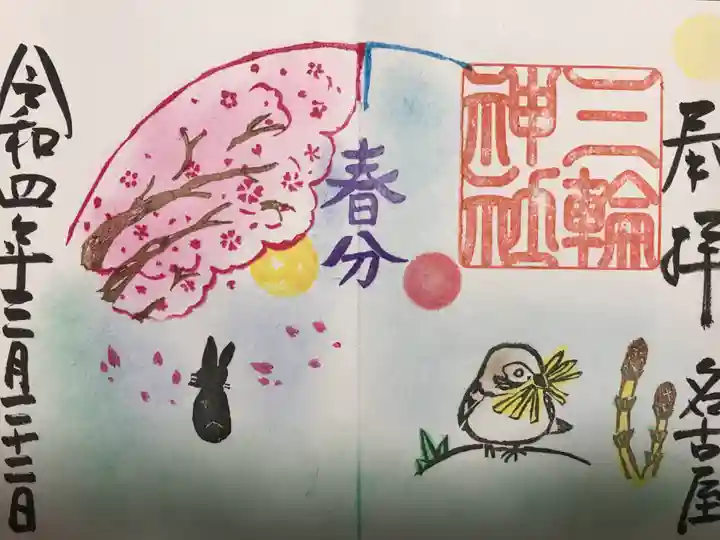 奉拝 名古屋
三輪
神社
春分
令和四年三月二十二日